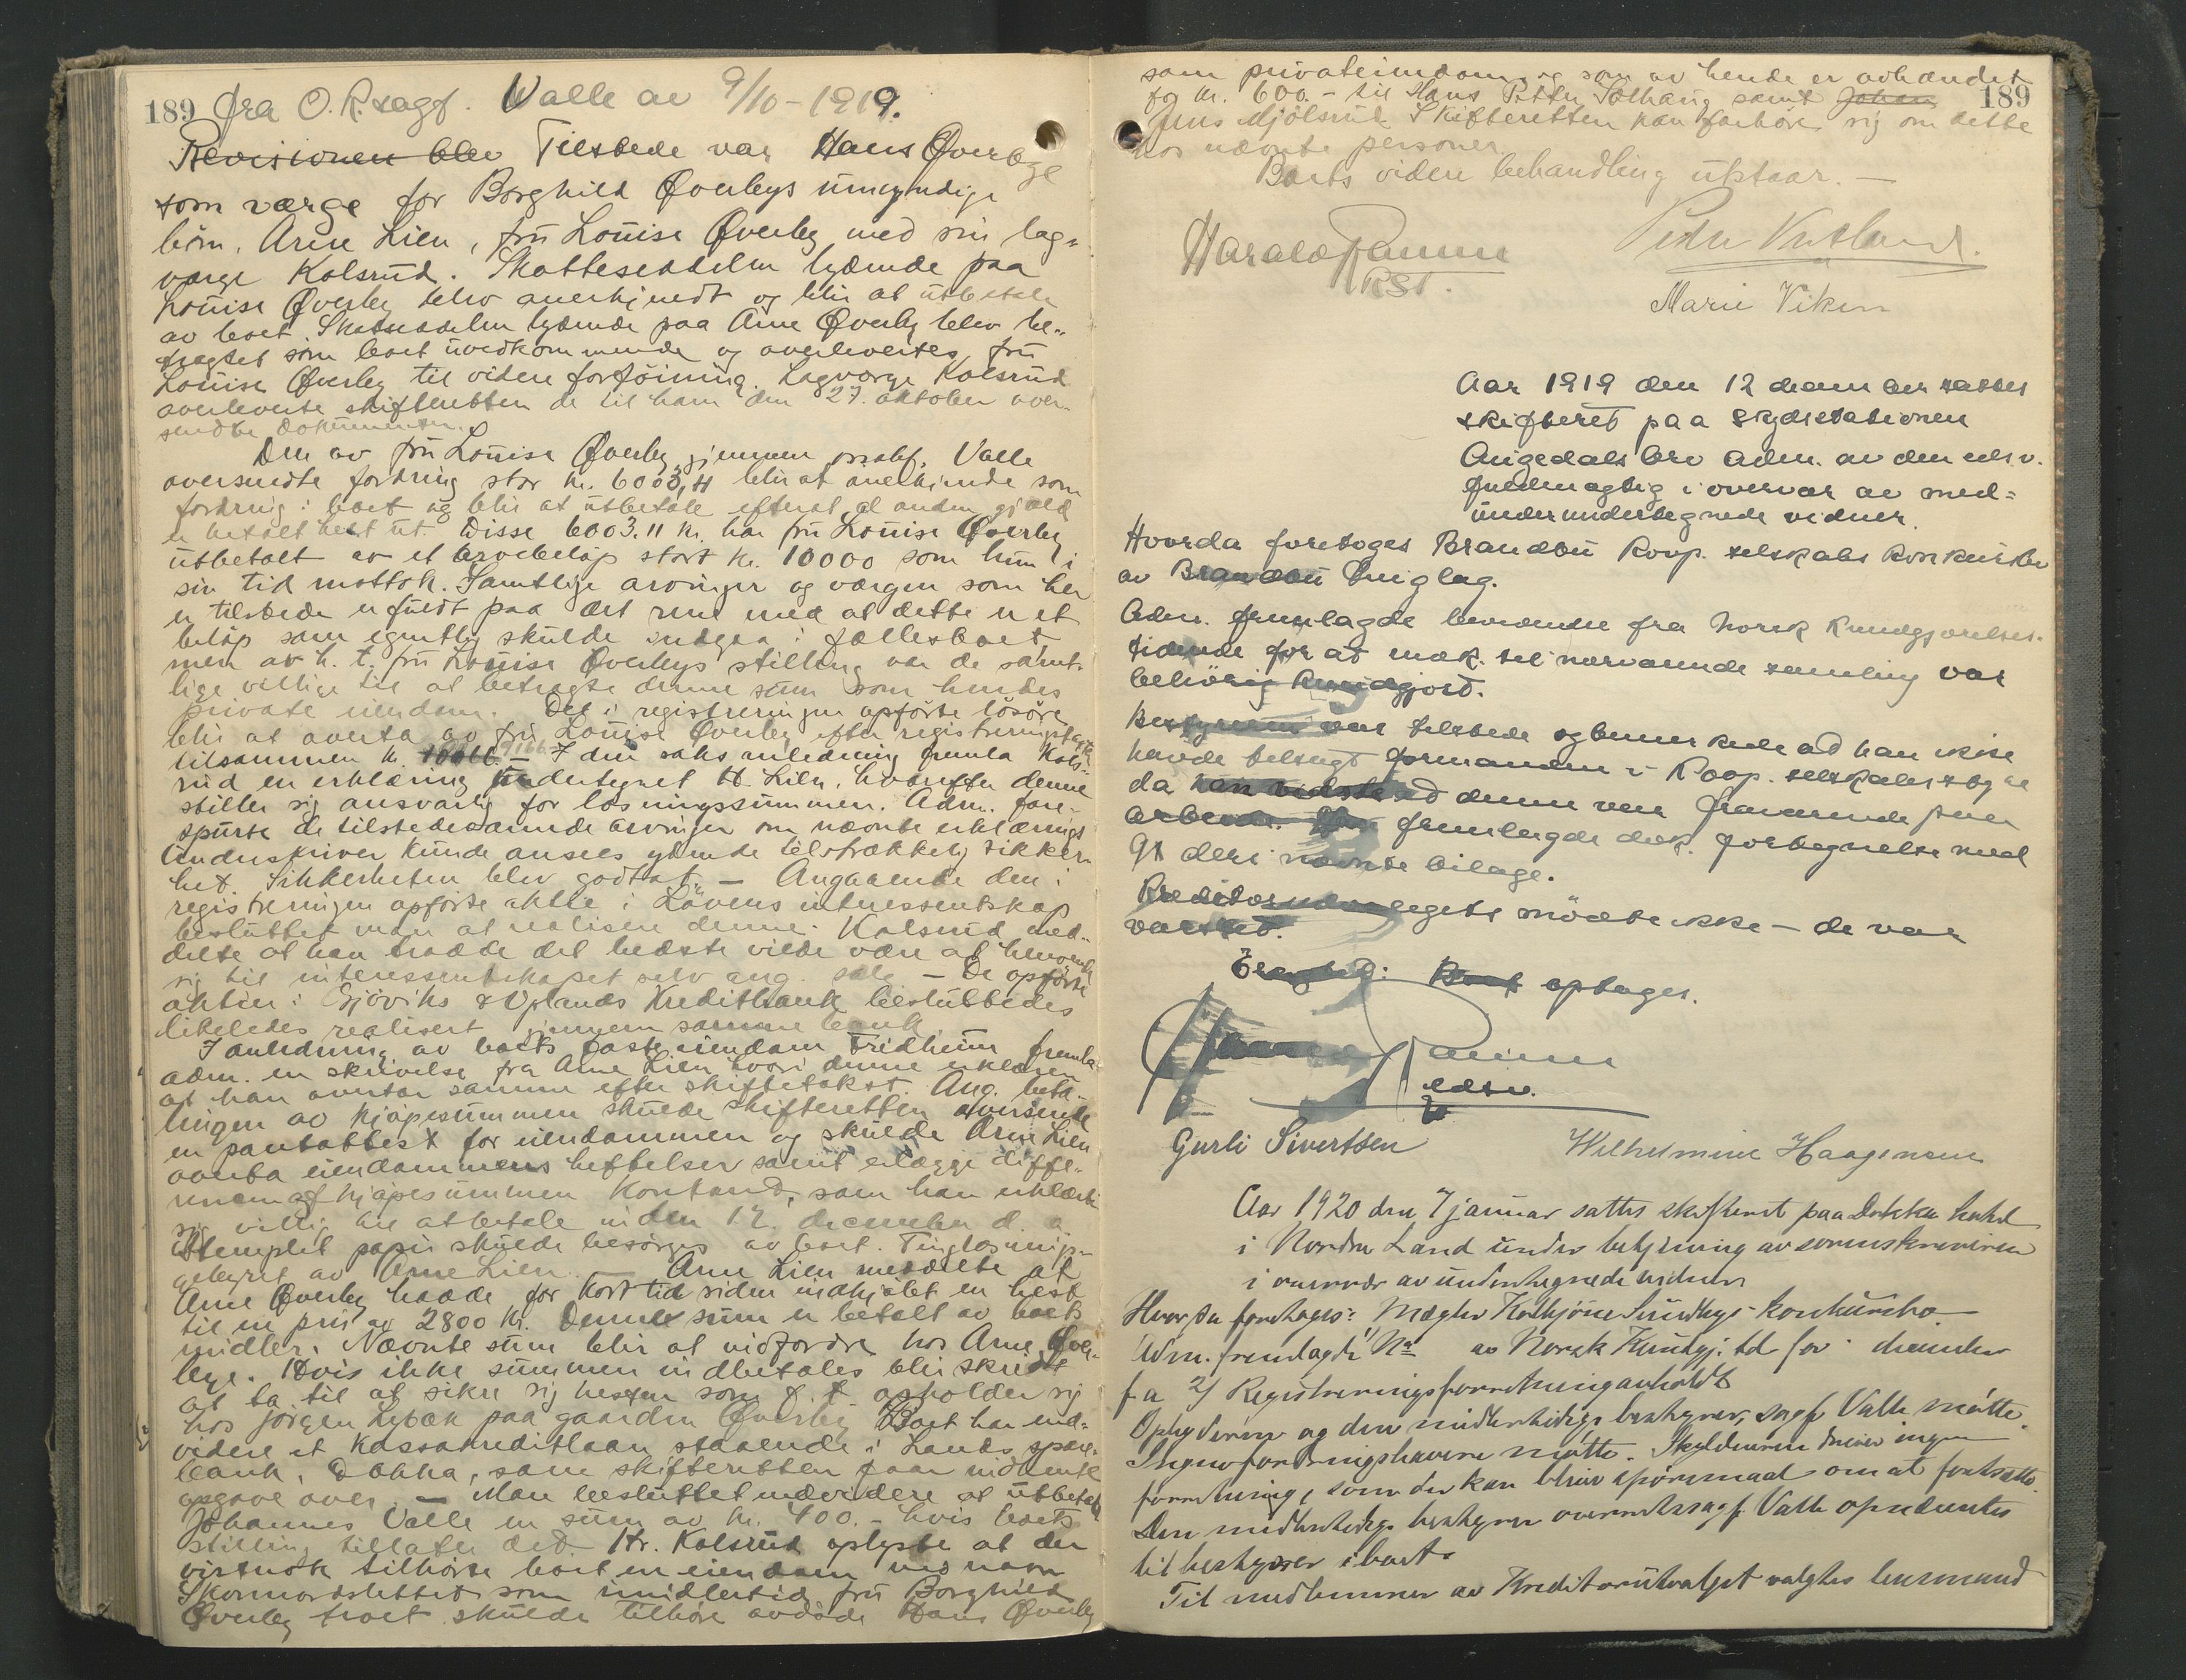 189 fra O.R.sagf. Valle av 9/10-1919.
Revisionen blev Tilstede var Hans Øverbye
som værge for Borghild Øverbys umyndige
børn, Arne Lien, fru Louise Øverby med sin lag-
værge Kolsrud. Skatteseddelen lydende paa
Louise Øverby blev anerkjendt og blir at utbetale
av boet. Skatseddelen lydende paa Arne Øverby blev be-
tragtet som boet uvedkommende og overlevertes fru
Louise Øverby til videre forføining. Lagværge Kolsrud
overleverte skifteretten de til ham den 27. oktober over-
sendte dokumenter.
Den av fru Louise Øverby gjennem orsakf. Valle
oversendte fordring stor kr. 6003,11 blir at anerkjende som
fordring i boet og blir at utbetale efterat al anden gjæld
er betalt helt ut. Disse 6003.11 kr. har fru Louise Øverby
utbetalt av et arvebeløp stort kr. 10000 som hun i
sin tid mottok. Samtlige arvinger og værgen som her
er tilstede er fuldt paa det rene med at dette er et
beløp som egentlig skulde indgaa i fællesboet,
men av h. t. fru Louise Øverbys stilling var de samt-
lige villige til at betragte denne sum som hendes
private eiendom. Det i registreringen opførte løsøre
blir at overta av fru Louise Øverby efter registreringstakst
tilsammen kr. – I den saks anledning fremla Kols-
rud en erklæring undertegnet H. Lien, hvorefter denne
stiller sig ansvarlig for løsningssummen. Adm. fore-
spurte de tilstedeværende arvinger om nævnte erklærings
underskriver kunde ansees ydende tilstrækkelig sikker-
het. Sikkerheten blev godtat. – Angaaende den i
registreringen opførte aktie i Løvens interessentskap
besluttet man at realisere denne. Kolsrud med-
delte at han trodde det bedste vilde være at henvende
sig til interessentskapet selv ang. salg. – De opførte
aktier i Gjøviks & Oplands Kreditbank besluttedes
likeledes realisert gjennem samme bank.
I anledning av boets faste eiendom Fridheim fremla
adm. en skrivelse fra Arne Lien hvori denne erklærer
at han overtar samme efter skiftetakst. Ang. beta-
lingen av kjøpesummen skulde skifteretten oversende
en pantattest for eiendommen og skulde Arne Lien
overta eiendommens heftelser samt erlægge diffe-
rencen af kjøpesummen kontant, som han erklærte
sig villig til at betale inden 12. december d. a.
Stemplet papir skulde besørges av boet. Tinglæsnings-
gebyret av Arne Lien. – Arne Lien meddelte at
Arne Øverby hadde for kort tid siden indkjøbt en hest
til en pris av 2800 kr. Denne sum er betalt av boets
midler. Nævnte sum blir at indfordre hos Arne Øver-
bye. Hvis ikke summen indbetales blir skridt
at ta til at sikre sig hesten som f. t. opholder sig
hos Jörgen Lybæk paa gaarden Øverby. Boet har end-
videre et Kassakreditlaan staaende i Lands spare-
bank, Dokka, som skifteretten faar indhente
opgave over. – Man besluttet endvidere at utbetale
Johannes Valle en sum av kr. 400.- hvis boets
stilling tillater det. Hr. Kolsrud oplyste at der
visstnok tilhørte boet en eiendom ved navn
Skormordslettet som imidlertid fru Borghild
Øverby trodde skulde tilhøre avdøde Hans Øverby
som privateiendom, og som av hende er avhændet
for kr. 600.- til Hans Petter Solhaug samt Johan 189
Jens Mjølsrud. Skifteretten kan forhøre sig om dette
hos nævnte personer.
Boets videre behandling utstaar. –
Harald Ramm
Peder
Marie Viken
Aar 1919 den 12 december sattes
skifteret paa Skydsstationen
Augedals bro adm. av den edsv.
fuldmægtig i overvær av med-
underundertegnede vidner.
Hvorda foretoges Brandbu Koop. selskabs konkursbo
av Brandbu tinglag.
Adm. fremlagde bevidnelse fra Norsk Kundgjørelses-
tidende for at indk. til nærværende samling var
behörig kundgjort.
Bestyreren var tilstede og bemerkede at han ikke
havde tilsagt formanden i Koop. selskabets styre
da han vidste at denne var fraværende paa
arbeide. Han fremlagde dok. fortegnelse med
98 deri nævnte bilage.
Kreditorudvalget mödte ikke – de var
varslet.
Boet optages.
Harald Ramm
edsv.
Gurli Sivertsen
Wilhelmine Haagensen
Aar 1920 den 7 januar sattes skifteret paa Dokka hotel
i Nordre Land under betjening av sorenskriveren
i overvær av undertegnede vidner
Hvorda foretoges: Mægler Sundbys konkursbo
Adm. fremlagde No av Norsk Kundgj. td for december
f a 2) Registreringsforretning avholdt
Opbyderen og den midlertidige bestyrer, sagf. Valle møtte.
Ingen fordringshavere møtte. Skyldneren driver ingen
forretning, som der kan bli spørsmaal om at fortsætte.
Den midlertidige bestyrer overretssagf. Valle opnævntes
til bestyrer i boet.
Til medlemmer av Kreditorutvalget valgtes lensmand